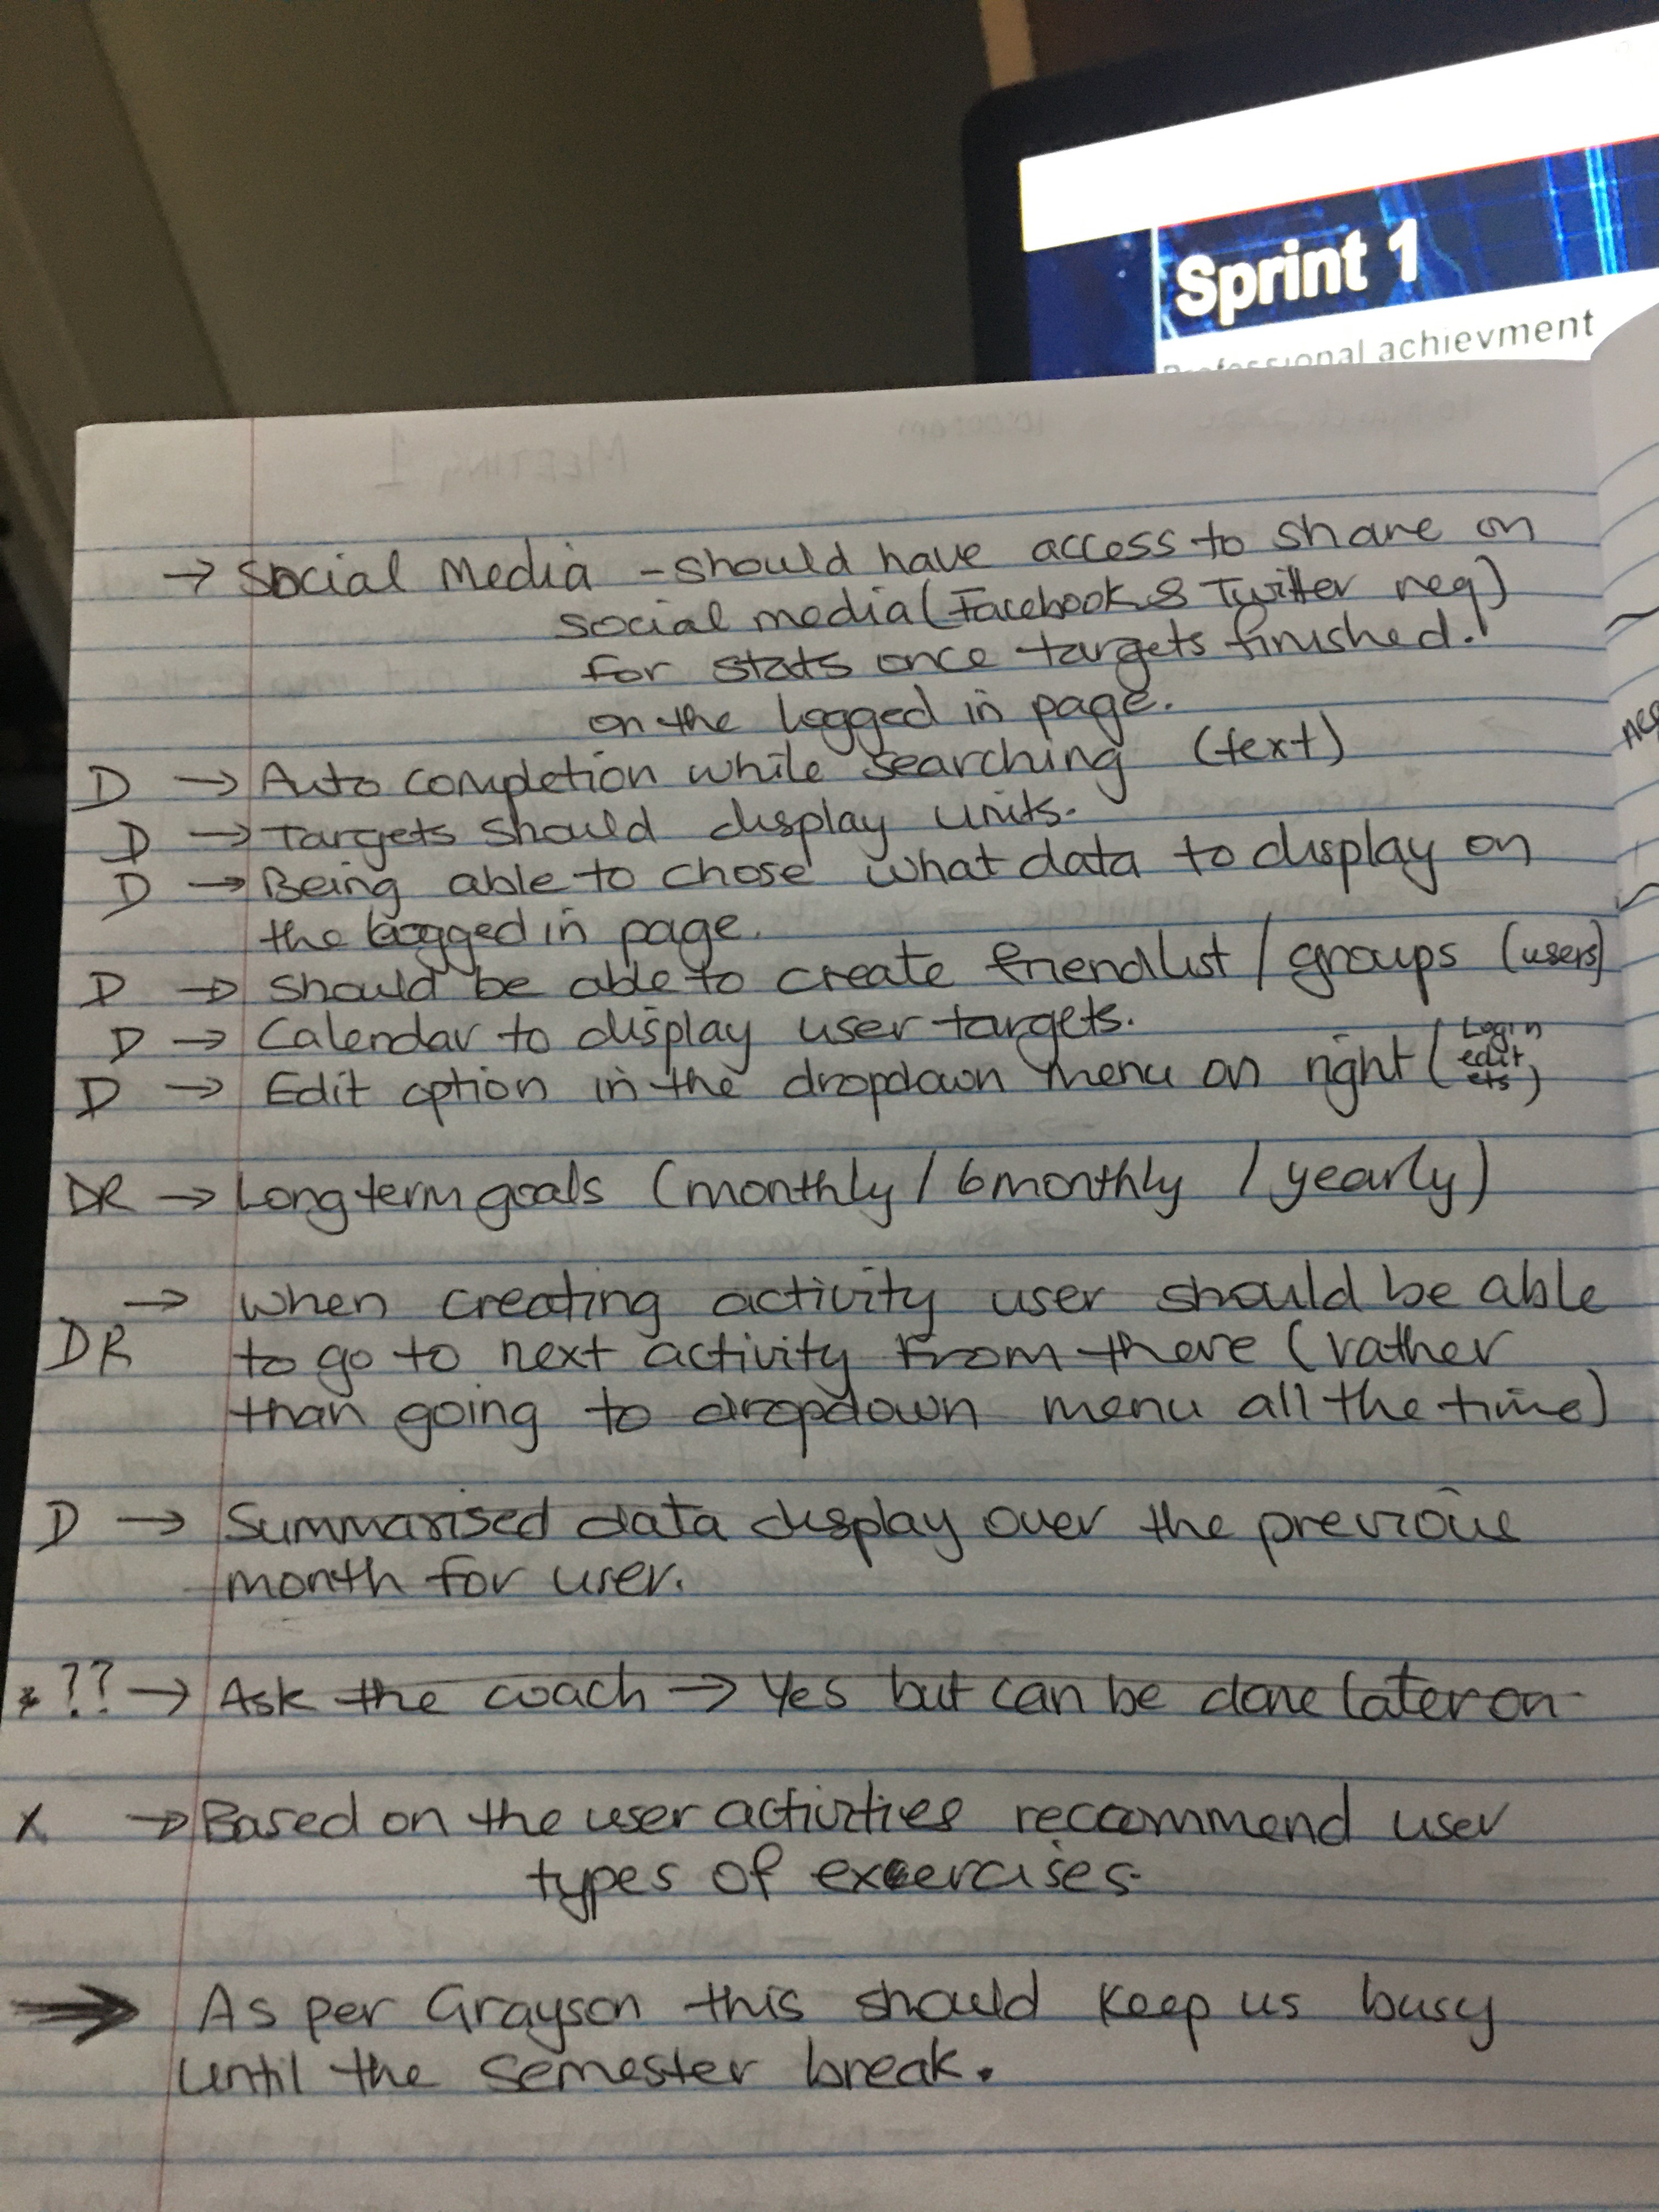 Sprint 1
Professional achievment
MEETING 1
→ Social Media - should have access to share on
social media (Facebook & Twitter req)
for stats once targets finished.
on the logged in page.
D → Auto completion while searching (text)
D → Targets should display units.
D → Being able to chose what data to display on
the logged in page.
D → should be able to create friendlist / groups (users)
D → Calendar to display user targets.
D → Edit option in the dropdown menu on right (Login
edit
ets)
DR → Long term goals (monthly / 6 monthly / yearly)
→ when creating activity user should be able
DR to go to next activity from there (rather
than going to dropdown menu all the time)
D → Summarised data display over the previous
month for user.
* ?? → Ask the coach → Yes but can be done later on
X → Based on the user activities reccommend user
types of excercises.
→ As per Grayson this should keep us busy
until the semester break.